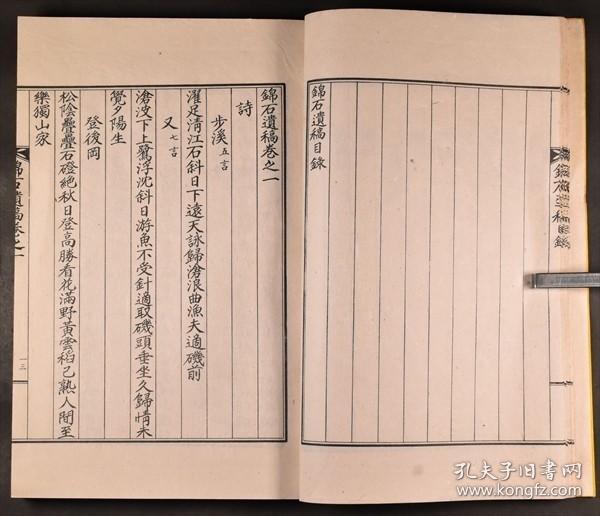 錦石遺稿目錄
錦石遺稿卷之一
詩
步溪 五言
濯足淸江石斜日下遠天詠歸滄浪曲漁夫適磯前
又 七言
滄波下上鷺浮沈斜日游魚不受針適取磯頭垂坐久歸情未
覺夕陽生
登後岡
松陰疊疊石磴絶秋日登高勝看花滿野黃雲稻已熟人間至
樂獨山家
錦石遺稿卷之一
一三
孔夫子旧书网
www.kongfz.com